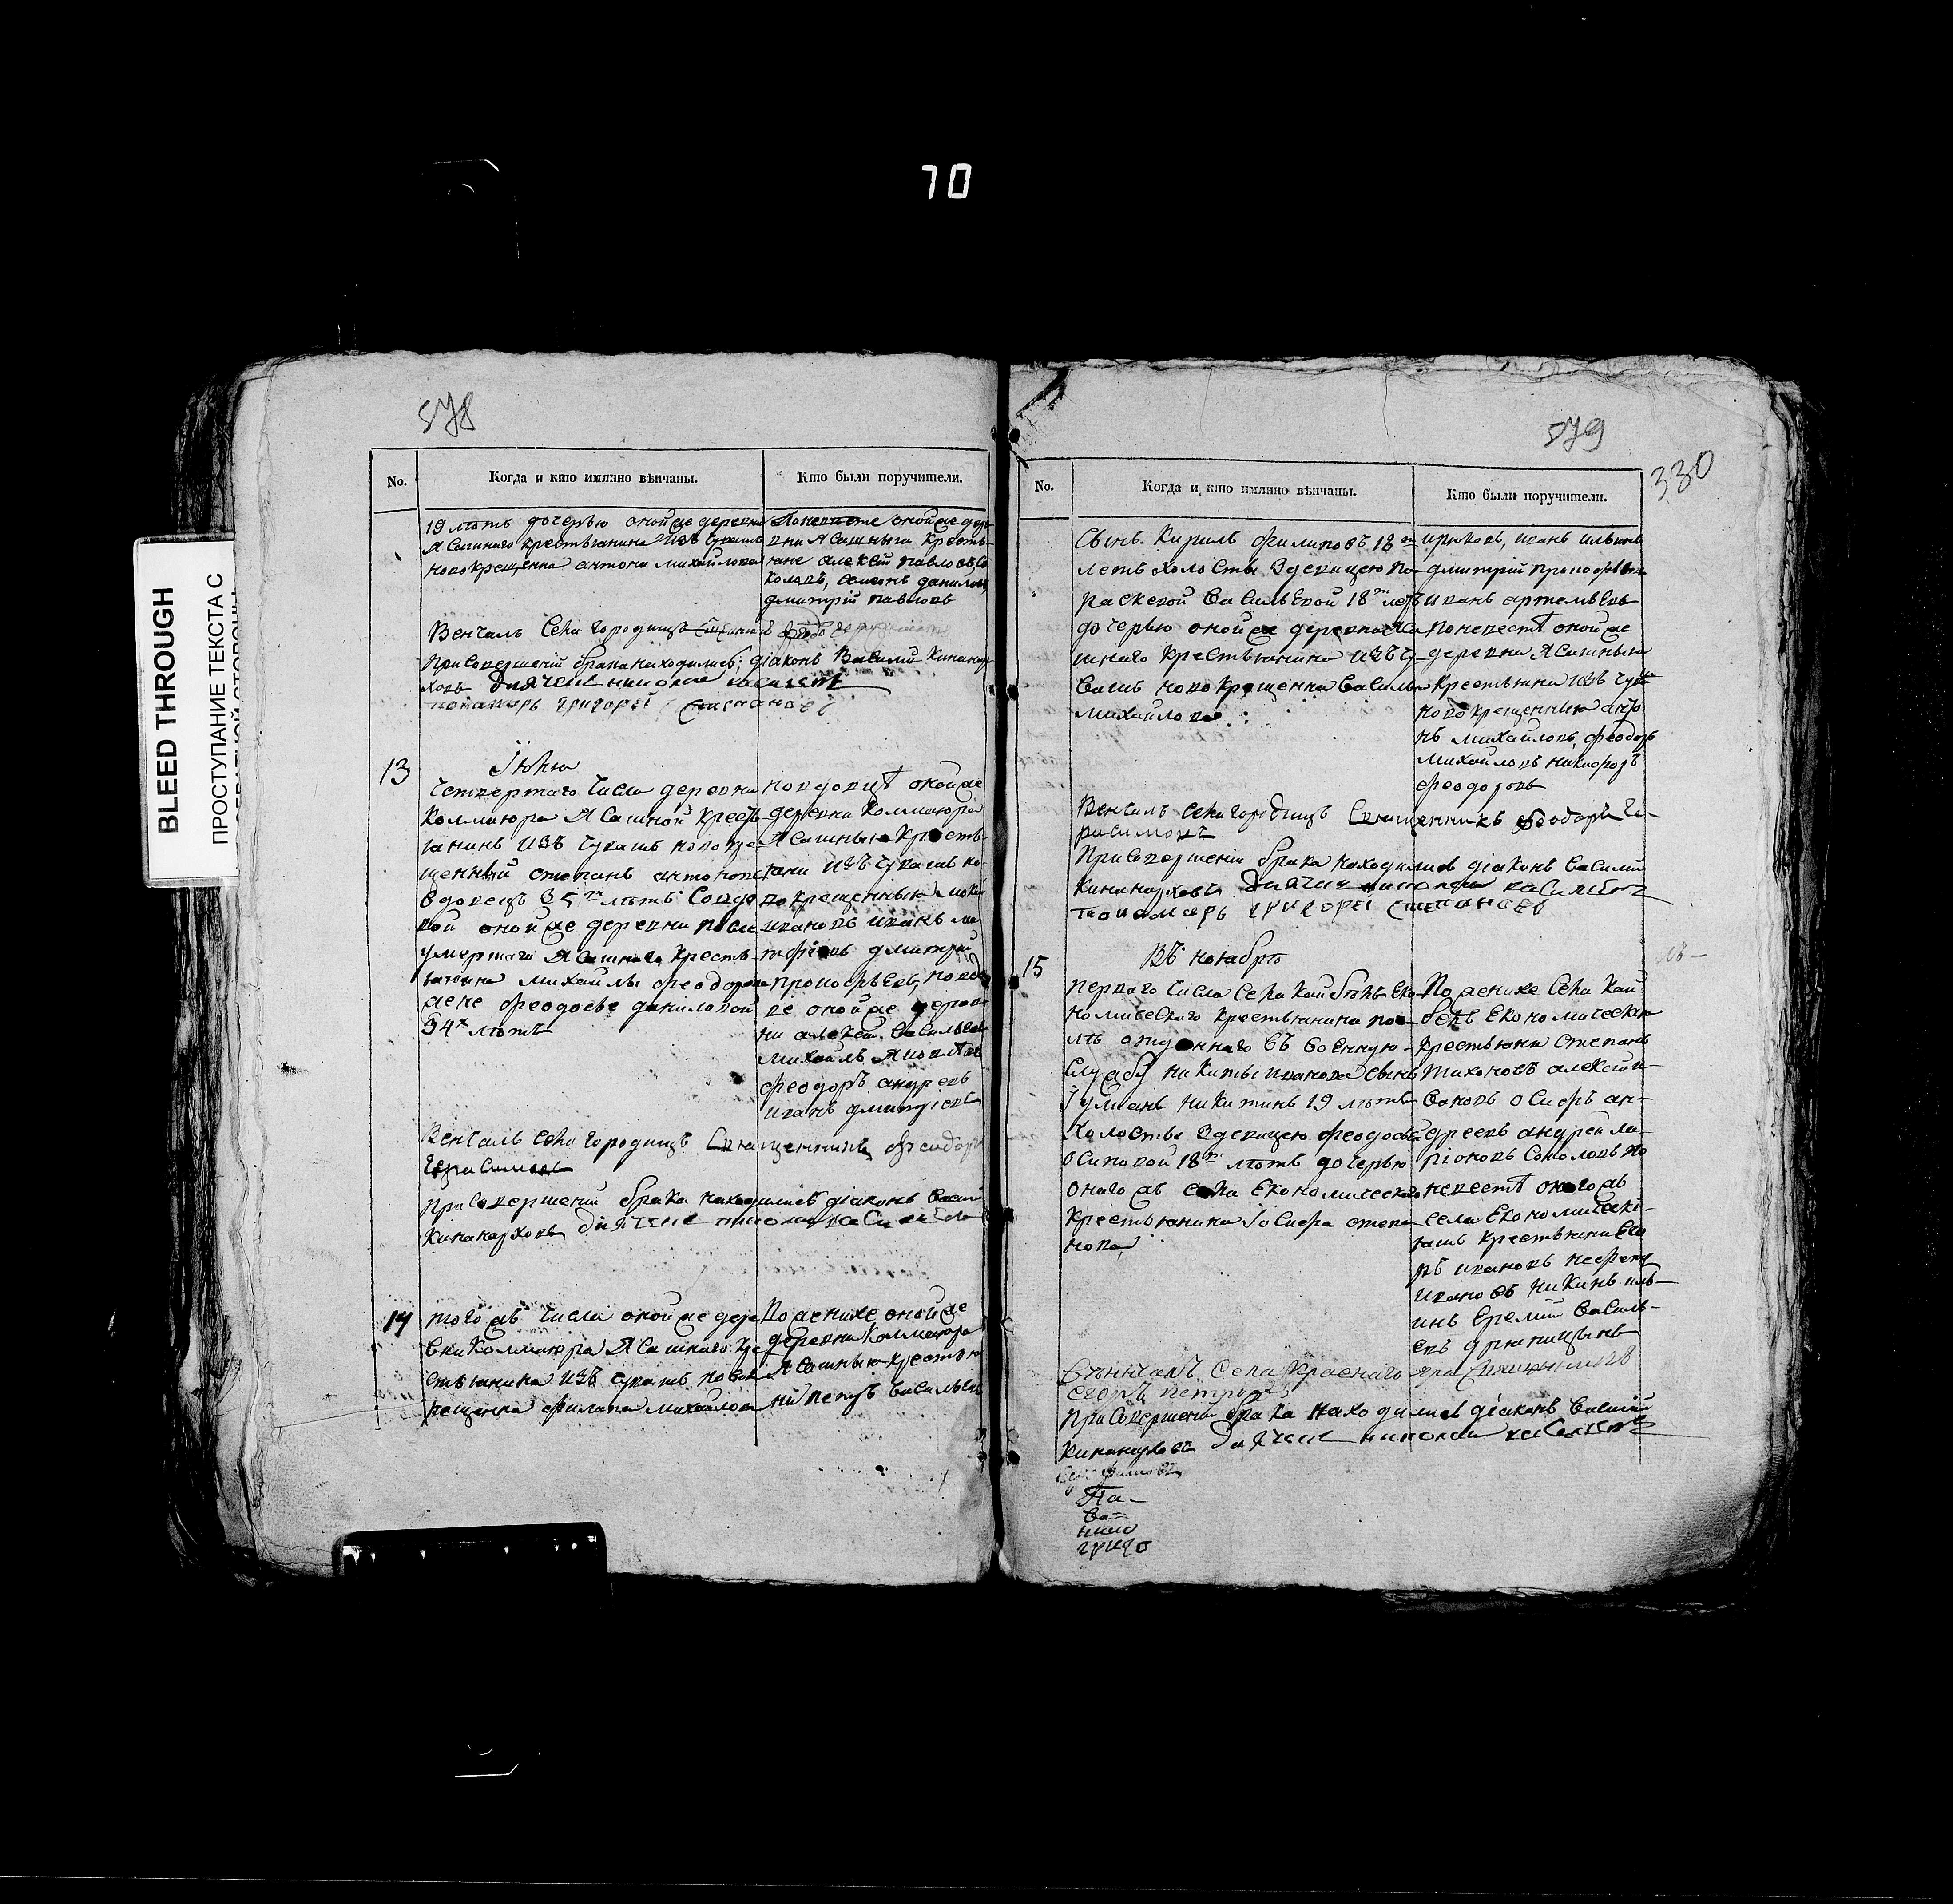 70
BLEED THROUGH
ПРОСТУПАНИЕ ТЕКСТА С
578
No.
Когда и кто имянно вѣнчаны.
Кто были поручители.
19 лѣтъ дочерью оной же деревни
Ясашнаго крестьянина изъ чувашъ
новокрещенна антона михайлова
По невесте оной же дере-
вни Ясашныя кресть-
яне алексѣй павловъ
семенъ данилов
дмитрій павловъ
Венчалъ села городищъ
При совершеніи брака находились; діаконъ Василій Кинонар-
ховъ Дьячекъ николай васильевъ
понамарь григорей степановъ
13
Іюня
четвертаго числа деревни
Коллаюра Ясашной кресть-
янинъ изъ чувашъ новокре-
щенный степанъ антоновъ
вдовецъ 35 лѣтъ со вдо-
вой оной же деревни после
умершаго Ясашнаго кресть-
янина михайлы феодорова
жене феодосье даниловой
34х лѣтъ
По вдовцѣ оной же
деревни Коллаюра
Ясашныя кресть-
яни изъ чувашъ но-
вокрещенныя
ивановъ иванъ ма-
тфѣевъ дмитрій
прокофьевъ, по вдо-
ве оной же дерев-
ни алексѣй васильевъ
михайлъ Яковлевъ
феодоръ андреевъ
иванъ дмитріевъ
Венчалъ села городищъ Священникъ феодоръ
Герасимовъ
При совершеніи брака находились діаконъ васили
кинонарховъ дьячекъ николай васильевъ
14
того жъ числа оной же дере-
вни Коллаюра Ясашнаго кре-
стьянина изъ чувашъ новок-
рещенна филипа михайлова
По женихе оной же
деревни Коллаюра
Ясашныя крестья-
ни петръ васильевъ
579
330
No.
Когда и кто имянно вѣнчаны.
Кто были поручители.
Сынъ Кирилъ филиповъ 18
летъ холостъ з девицею па-
раскевой васильевой 18 летъ
дочерью оной же деревни Яса-
шнаго крестьянина изъ чу-
вашъ новокрещенна василья
михайлова
иванъ ильинъ
дмитрій прокофьевъ
иванъ артемьевъ
По невестѣ оной же
деревни Ясашныя
крестьяни изъ чува
новокрещенныя анто
нъ михайловъ, феодоръ
михайловъ никифоръ
феодоровъ
Венчалъ села городищъ Священникъ феодоръ Ге-
расимовъ
При совершеніи брака находились діаконъ василій
кинонарховъ Дьячекъ николай васильевъ
понамарь григорей степановъ
15
Въ ноябрѣ
перваго числа села Кайбѣлъ Еко-
номическаго крестьянина пос-
лѣ отданнаго въ военную
службу никиты иванова сынъ
Іуліанъ никитинъ 19 лѣтъ
холостъ з девицею феодосьей
осиповой 18 лѣтъ дочерью
онаго жъ села Економическаго
крестьянина Іосифа степа-
нова
По женихе села Кай
Економическія
крестьяни степанъ
тихоновъ алексѣй и-
вановъ осифъ ан-
дреевъ андрей ла-
ріоновъ соколовъ по
невестѣ онаго жъ
села Економическі-
яжъ крестьяни его
ръ ивановъ
ивановъ никинъ иль-
инъ Еремій василь-
евъ
Вѣнчалъ Села Краснаго яра Священникъ
Егоръ петровъ
При совершеніи брака находились діаконъ василій
кинонарховъ дьячекъ николай васильевъ
Па-
ва-
нико
григо